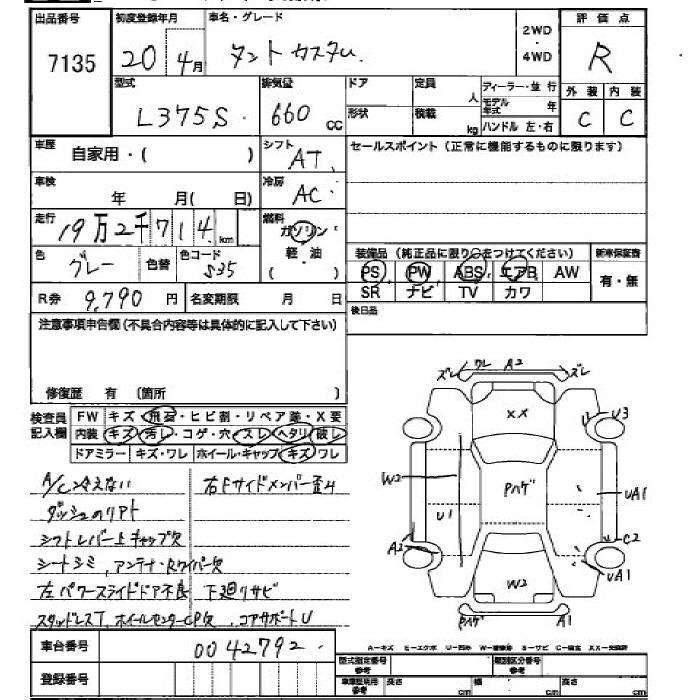 出品番号 初度登録年月 車名・グレード 評価点
7135 20年4月 タントカスタム 2WD・4WD R
型式 排気量 ドア 定員 人 ディーラー・並行 モデル年式 年 外装 内装
L375S 660cc 形状 積載 kg ハンドル 左・右 C C
車歴 自家用・( ) シフト AT セールスポイント(正常に機能するものに限ります)
車検 年 月(日) 冷房 AC
走行 19万2千714km 燃料 ガソリン 軽・油 ( )
色 グレー 色替 色コード S35 装備品(純正品に限り○をつけてください) 新車保証書
PS PW ABS エアB AW 有・無
R券 9,790円 名変期限 月 日 SR ナビ TV カワ
注意事項申告欄(不具合内容等は具体的に記入して下さい) 後日品
修復歴 有 〔箇所 〕
検査員記入欄 FW キズ・飛石・ヒビ割・リペア跡・X要
内装 キズ・汚れ・コゲ・穴・スレ・ヘタリ・破レ
ドアミラー キズ・ワレ ホイール・キャップ キズ・ワレ
A/C冷えない 右Fサイドメンバー歪み
ダッシュのリアト
シフトレバー上キャップ欠
シートシミ,アンテナ・Rワイパー欠
左パワースライドドア不良 下廻りサビ
スタッドレスT, ホイールセンターCP欠, コアサポートU
ズレ ワレ A2 ズレ
XX
U U3
W2 Pハゲ UA1
U1
A2 C2
W2 UA1
Pハゲ A1
車台番号 0042792
登録番号
A―キズ E―エクボ U―凹み W―補修跡 S―サビ C―腐食 XX―交換済
型式指定番号 参考 類別区分番号 参考
車庫証明用 参考 長さ cm 幅 cm 高さ cm